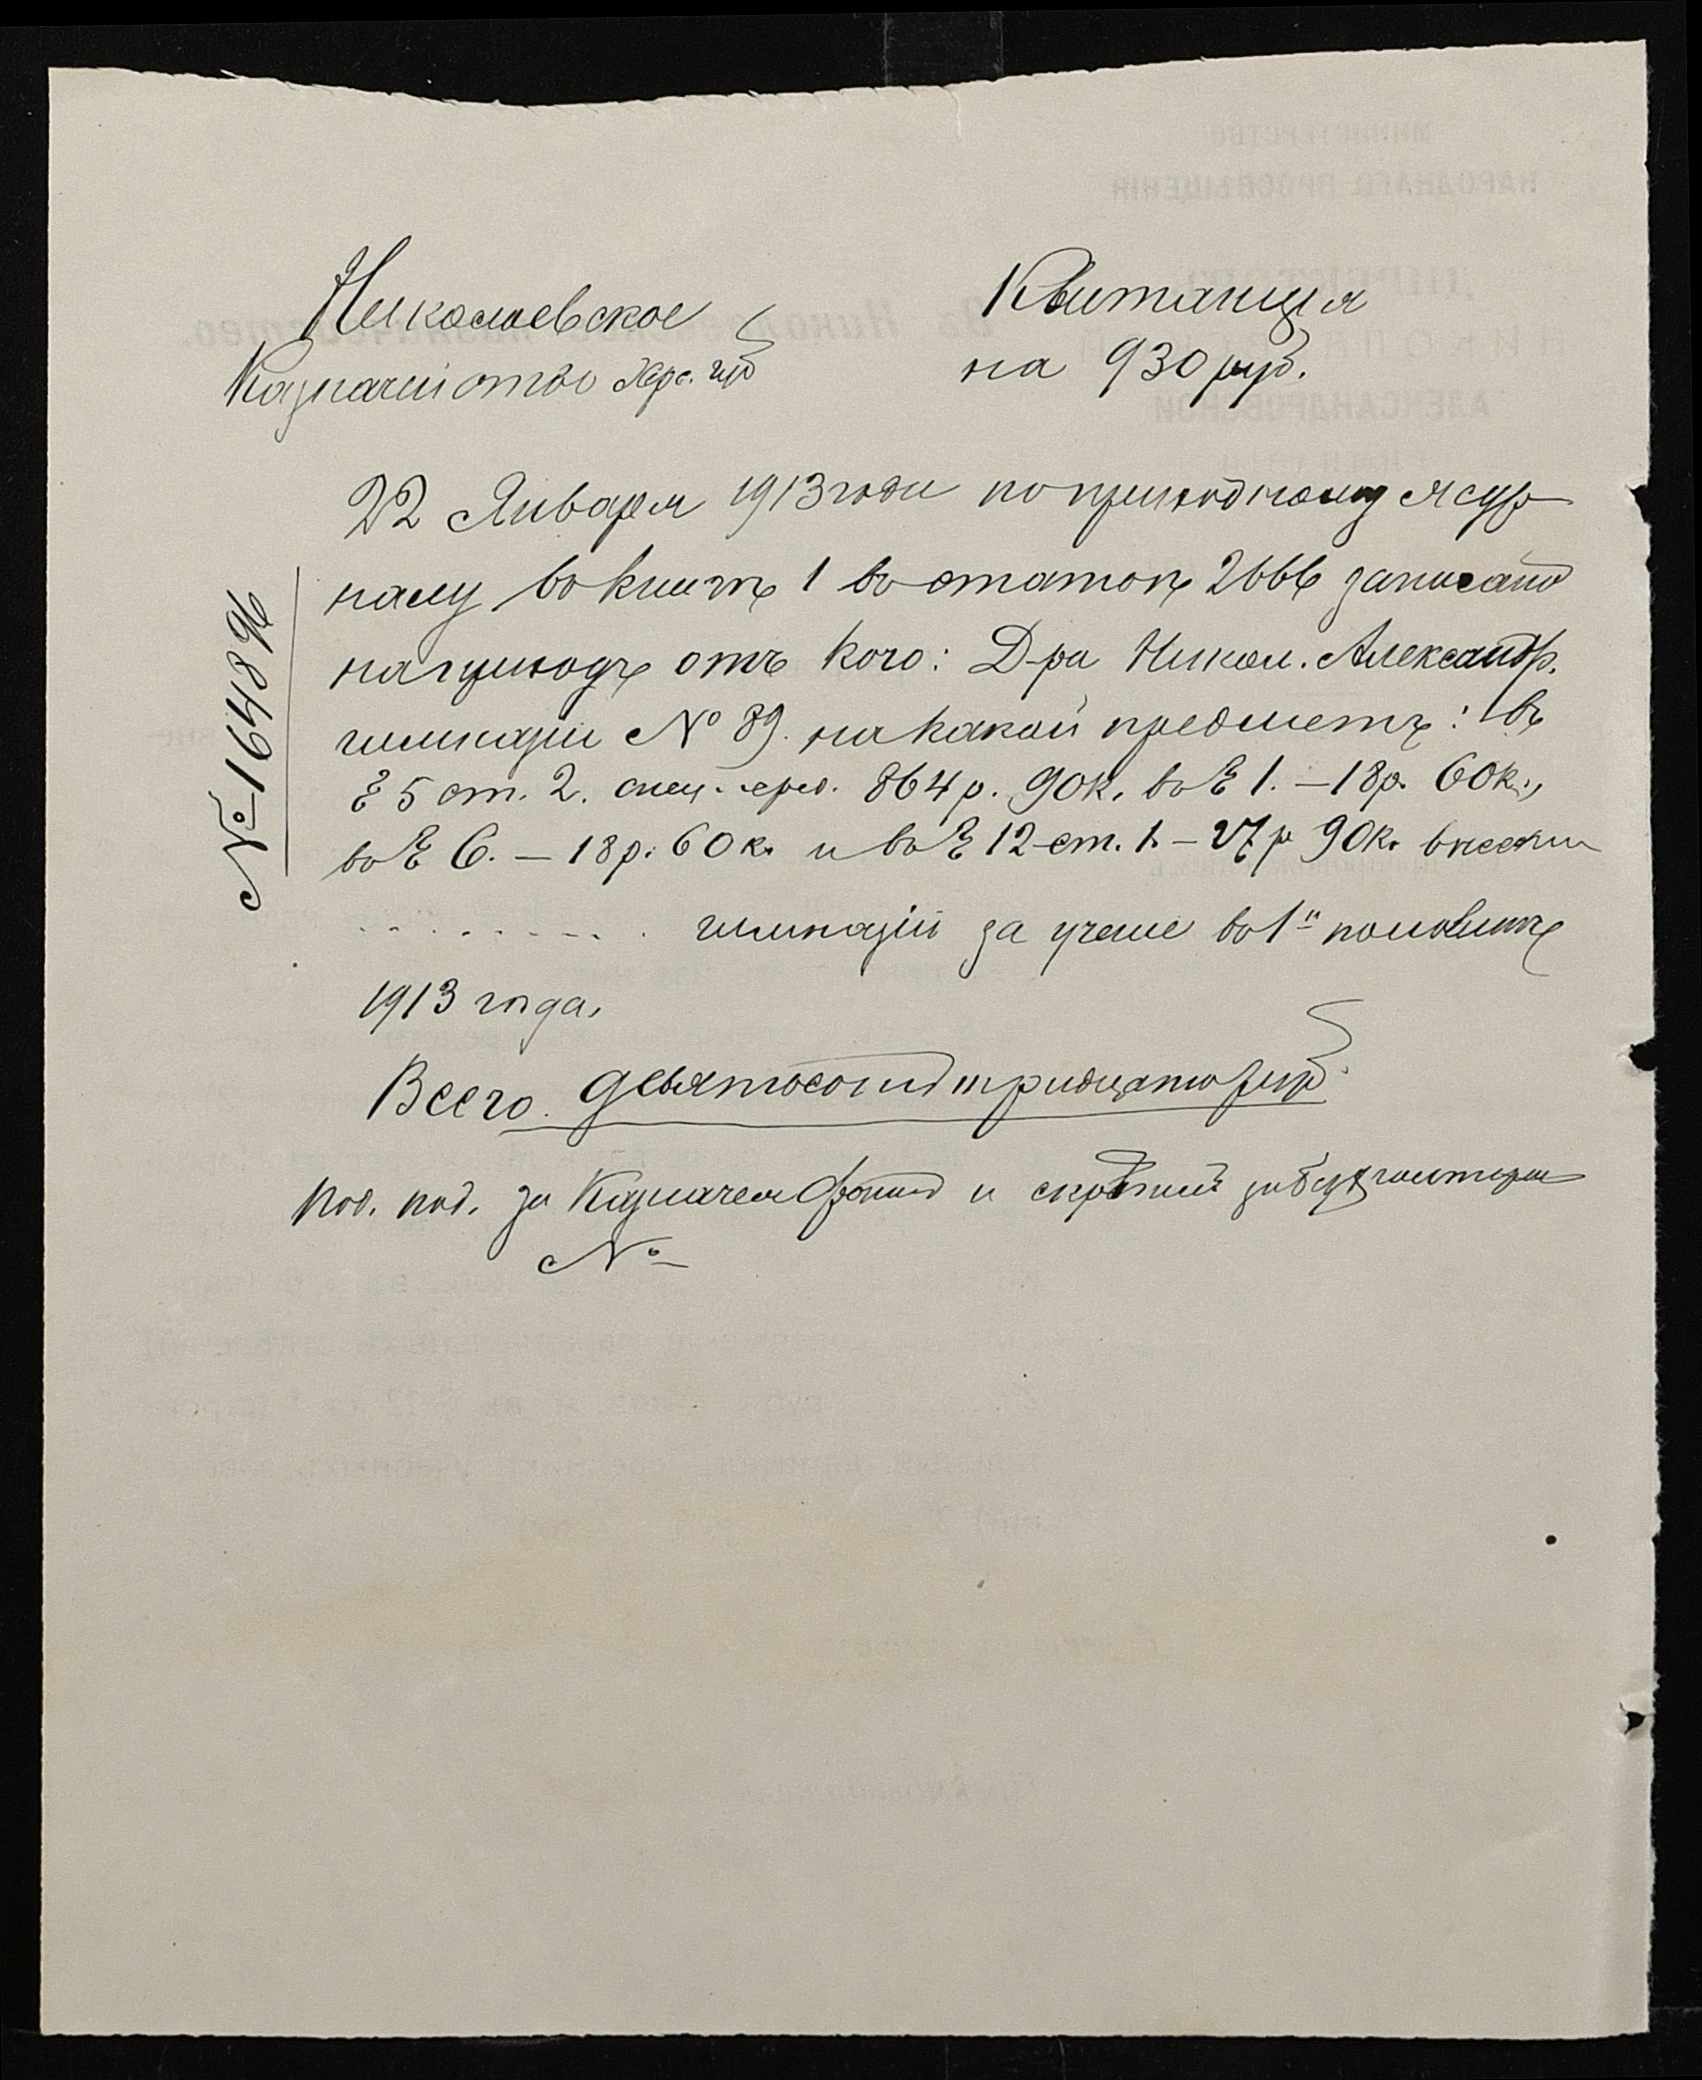 Николаевское
Казначейство Хер. губ
Квитанція
на 930 руб.
№ 164896
22 Января 1913 года по приходному жур-
налу въ книгѣ 1 въ статьѣ 2666 записано
на приходъ отъ кого: Д-ра Никол. Александр.
гимназіи № 89. на какой предметъ: въ
§ 5 ст. 2. спец. сред. 864 р. 90 к. въ § 1. – 18 р. 60 к.,
въ § 6. – 18 р. 60 к. и въ § 12 ст. 1. – 27 р 90 к. внесены
. . . . . . . . . гимназіи за ученіе въ 1й половинѣ
1913 года.
Всего девятьсотъ тридцать руб.
Под. под. за Казначея и скрѣпилъ за бухгалтера
№